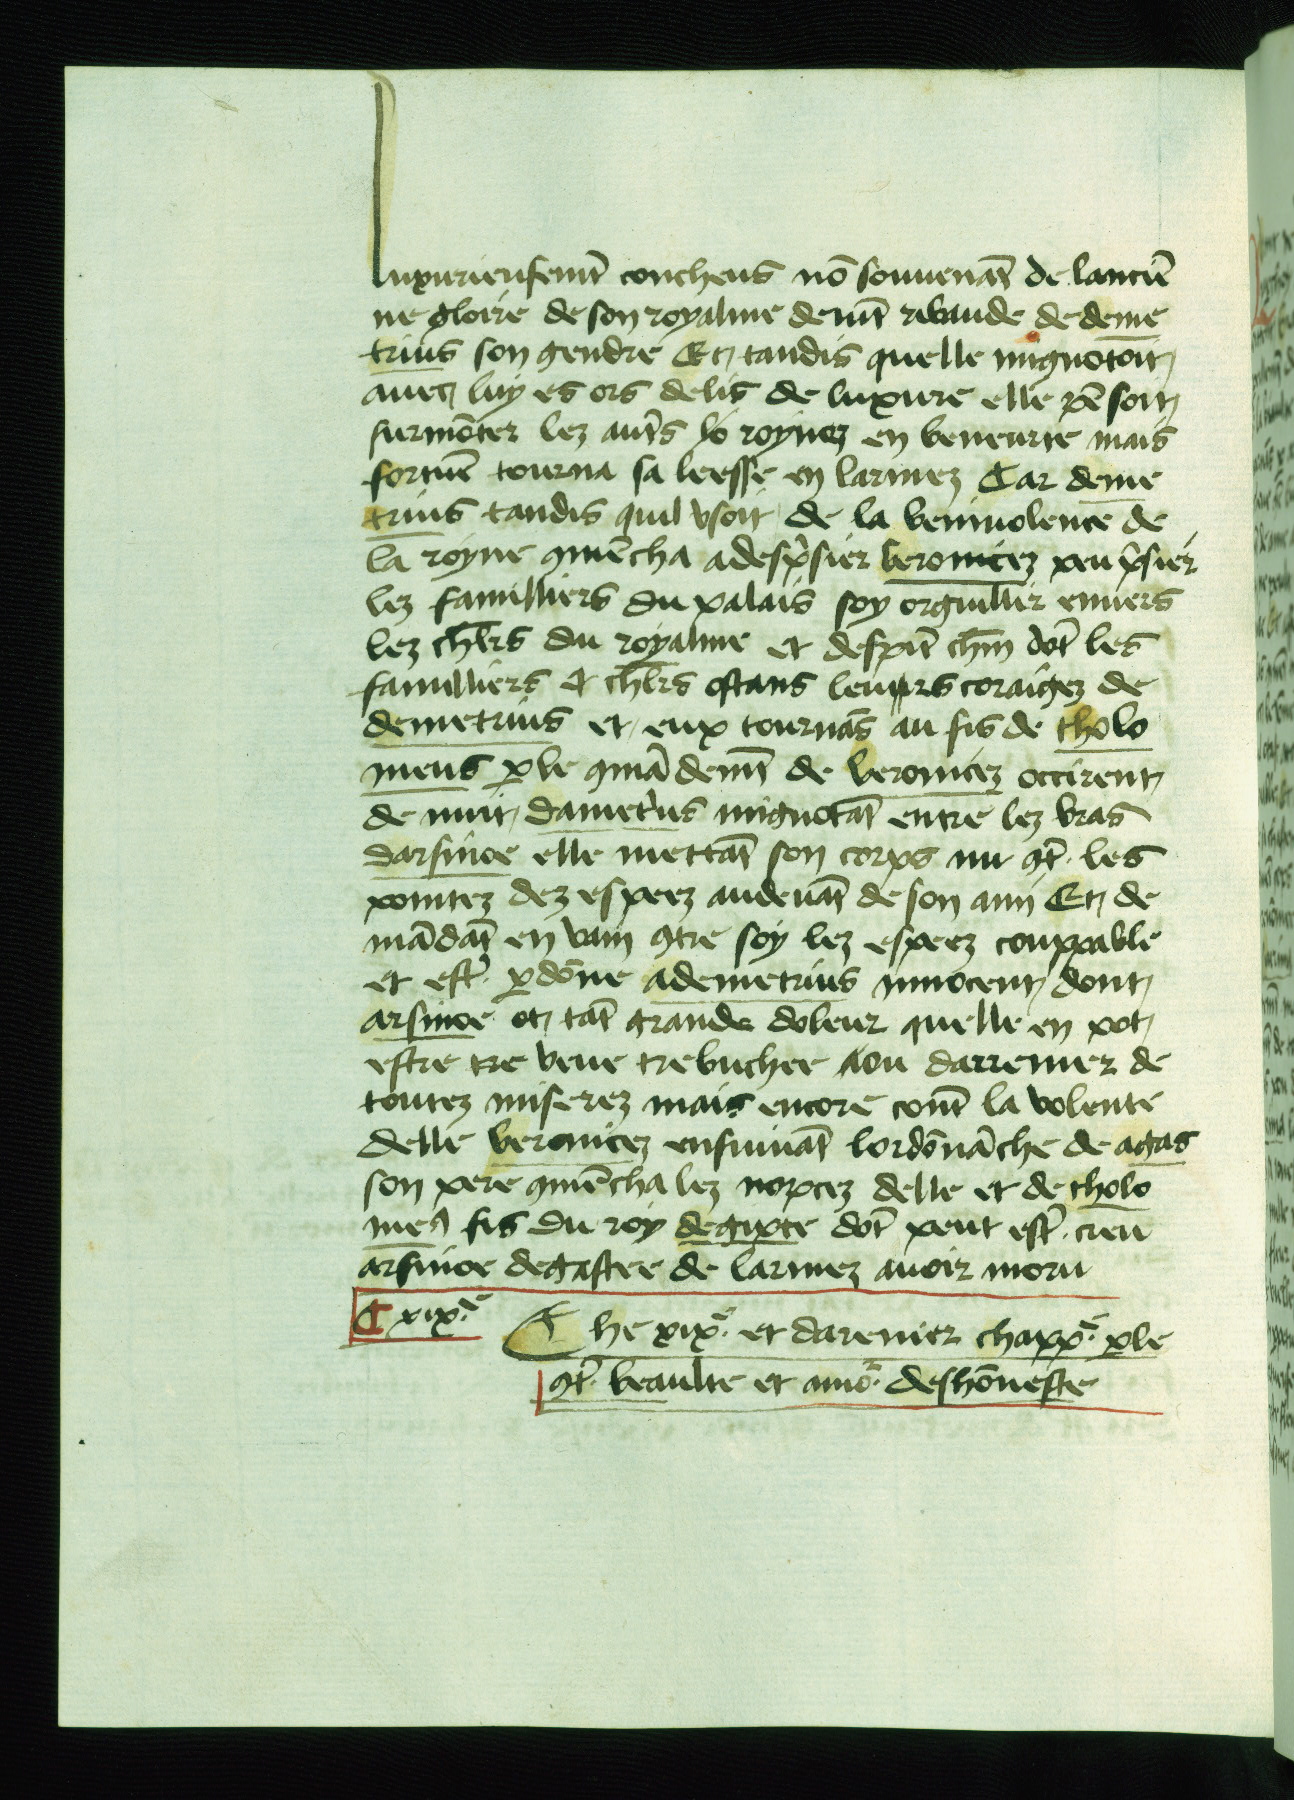 Luxurieusemt̄ concheus nō souuenāt de lanciē
ne gloire de son royalme deuīt ribaude de deme
trius son gendre Et tandis quelle mignotoit
auec luy es ors delis de luxure elle pēsoit
surmōter lez autr̄s roynez en beneurte mais
fortuē tourna sa leesse en larmez Car deme
trius tandis quil vsoit de la beniuolence de
la royne 9mēcha a desp̄sier beronicez peu p̄sier
lez familliers du palais soy orguillir enuers
lez chl̄rs du royalme et despīt chm̄ dōt les
familliers et chl̄rs ostans leurs coraigez de
demetrius et eux tournās au fis de tholo
meus ꝑ le 9mādemt̄ de beronicez occirent
de nuit dametr̄us mignotāt entre lez bras
darsinoe elle mettāt son corps nu 9t̄ les
pointez dez espeez audeuāt de son ami Et de
mādāt en vain 9tre soy lez espeez couppable
et estr̄ ꝑdōne a demetrius innocent dont
arsinoe ot tāt grande doleur quelle en pot
estre tre veue trebuchee ou darrenier de
toutez miserez mais encore cont̄ la volente
delle beronicez ensuiuāt lordōnāche de agas
son pere 9mēcha lez nopcez delle et de tholo
me9 fis du roy degipte dōt peut estr̄ creu
arsinoe degastee de larmez auoir moru
C xix.e
Che xix.e et darenier chapp.e ꝑle
9t̄ beaulte et amo.r deshōneste